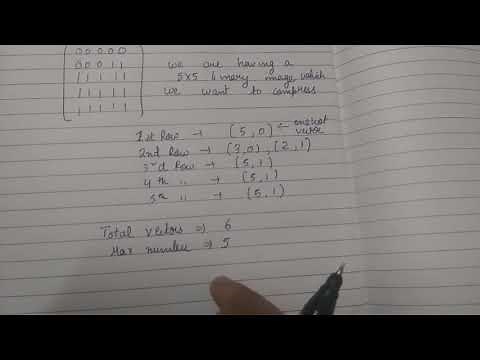 0 0 0 0 0
0 0 0 1 1
1 1 1 1 1
1 1 1 1 1
1 1 1 1 1
we are having a
5x5 binary image which
we want to compress
1st Row → (5,0) ←
2nd Row → (3,0), (2,1)
3rd Row → (5,1)
4th " → (5,1)
5th " → (5,1)
Total vectors ⇒ 6
Max number ⇒ 5